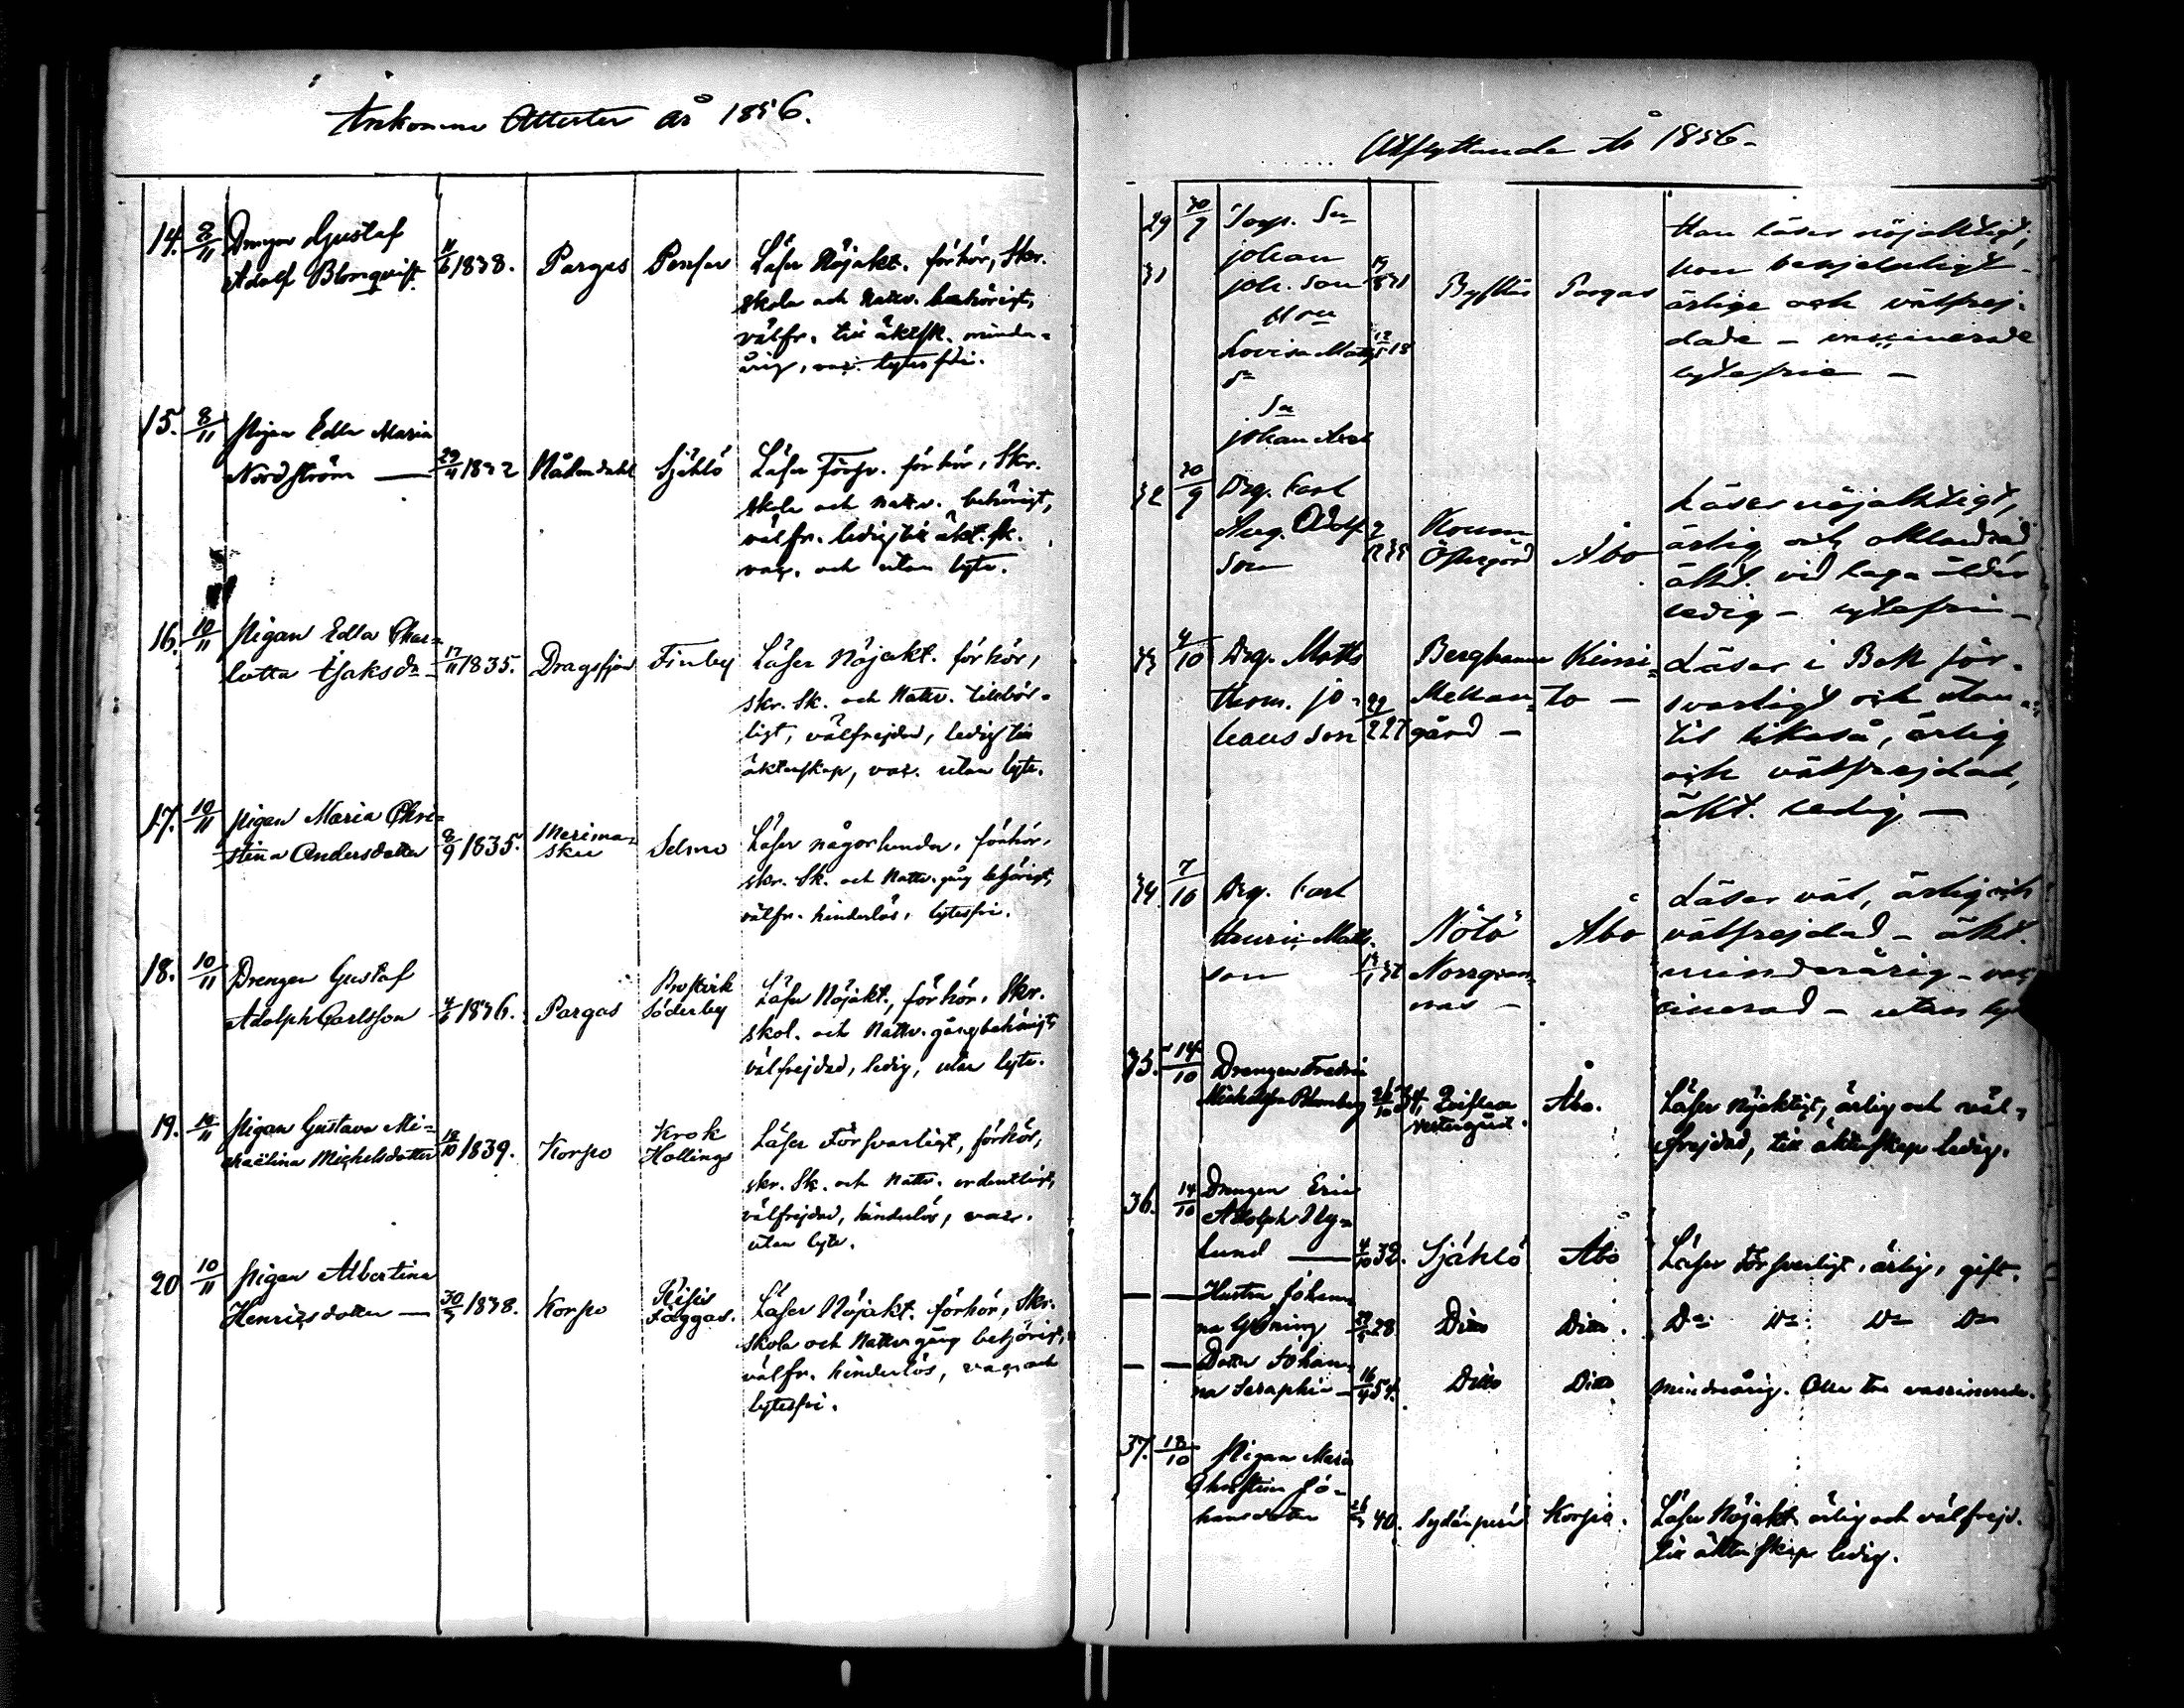 Ankomne Attester år 1856.
14. 8/11 Drengen Gustaf
Adolf Blomqvist 11/6 1838. Pargas Pensar Läser Nöjakt. förhör, Skr.
skola och Nattv. behörigt,
välfr. till äktsk. minder-
årig, vac. lytesfri.
15. 8/11 Pigan Edla Maria
Nordström — 29/4 1832 Nådendahl Själö Läser Försv. förhör, Skr.
skola och nattv. behörigt,
välfr. ledig till äkt.sk.
vac. och utan lyte.
16. 10/11 Pigan Edla Char-
lotta Isaksdr 17/11 1835. Dragsfjerd Finby Läser Nöjakt. förhör,
skr. Sk. och Nattv. tillbör-
ligt, välfrejdad, ledig till
äktenskap, vac. utan lyte.
17. 10/11 Pigan Maria Chri-
stina Andersdotter 8/9 1835. Merima-
sku Selmo Läser någorlunda, förhör,
skr. Sk. och Nattv. gång behörigt,
välfr. hinderlös, lytesfri.
18. 10/11 Drengen Gustaf
Adolph Carlsson 4/6 1836. Pargas Prostvik
Söderby Läser Nöjakt., förhör, Skr.
skol. och Nattv. gång behörigt,
välfrejdad, ledig, utan lyte.
19. 10/11 Pigan Gustava Mi-
chaëlina Michelsdotter 12/10 1839. Korpo Krok
Hollings Läser Försvarligt, förhör,
skr. Sk. och Nattv. ordentligt,
välfrejdad, hinderlös, vacc.
utan lyte.
20 10/11 Pigan Albertina
Henricsdotter — 30/3 1838. Korpo
Fäggas. Läser Nöjakt. förhör, Skr.
skola och Nattv. gång behörigt,
välfr. hinderlös, vac. och
lytesfri.
Utflyttande År 1856.
29 30/9 Torp. Sn
31 Johan
Joh. Son Pargas
Lovisa Matts
Johan Axel
Han läser nöjaktigt,
hon
ärlige och välfrej-
dade – vaccinerade
lytefrie –
32 30/9 Drg. Carl
Aug. Adolf
Son
Östergård Åbo
Läser nöjaktigt,
ärlig och oklandrad
äkt. vid laga ålder
ledig – lytefri –
33 4/10 Drg. Matts
Thom. Jo-
hansson 22/2 27 Berghamn
Mellan-
gård – Kimi-
to –
Läser i Bok för-
svarligt och utan-
til likaså, ärlig
och välfrejdad,
äkt. ledig —
34 7/10 Drg. Carl
Henric Matts-
son Nötö
Norrgran-
nas – Åbo
Läser väl, ärlig och
välfrejdad – äkt.
minderårig – vac-
cinerad – utan
35. 14/10 Drengen Fredric
Blomberg
Vestergård. Åbo. Läser Nöjaktigt, ärlig och väl-
frejdad, till äktenskap ledig.
36. 14/10 Drengen Eric
Adolph Ny-
lund — 4/10 32. Själö Åbo Läser Försvarligt, ärlig, gift.
— — Hustru Johan-
na Gröning 28. Dito Dito. Do Do Do Do
— — Dotter Johan-
na Seraphia – 16/4 54. Dito Dito Minderårig. Alla tre vaccinerade.
37. 18/10 Pigan Maria
Christina Jo-
hansdotter 40. Korpo. Läser Nöjakt ärlig och välfrejd.
till äktenskap ledig.